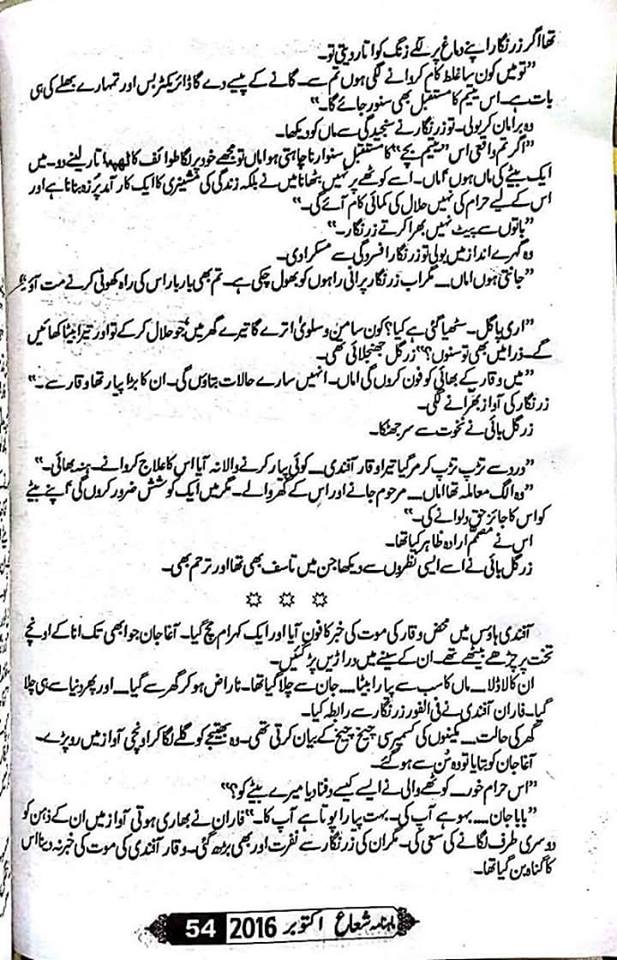 تھا اگر زرنگار اپنے دماغ پر لگے زنگ کو اتار دیتی تو۔
”تو میں کون سا غلط کام کروانے لگی ہوں تم سے۔ گانے کے پیسے دے گا ڈائریکٹر بس اور تمہارے بھلے کی ہی
بات ہے۔ اس یتیم کا مستقبل بھی سنور جائے گا۔“
وہ برا مان کر بولی۔ تو زرنگار نے سنجیدگی سے ماں کو دیکھا۔
”اگر تم واقعی اس ”یتیم بچے“ کا مستقبل سنوارنا چاہتی ہو اماں تو مجھے خود پر لگا طوائف کا ٹھپہ اتار لینے دو۔ میں
ایک بیٹے کی ماں ہوں اماں۔ اسے کوٹھے پر نہیں بٹھانا میں نے بلکہ زندگی کی مشینری کا ایک کار آمد پرزہ بنانا ہے اور
اس کے لیے حرام کی نہیں حلال کی کمائی کام آئے گی۔“
”باتوں سے پیٹ نہیں بھرا کرتے زرنگار۔“
وہ گہرے انداز میں بولی تو زرنگار افسردگی سے مسکرا دی۔
”جانتی ہوں اماں۔۔۔ مگر اب زرنگار پرانی راہوں کو بھول چکی ہے۔ تم بھی بار بار اس کی راہ کھوٹی کرنے مت آؤ
”اری پاگل۔ سٹھیا گئی ہے کیا؟ کون سا من و سلویٰ اترے گا تیرے گھر میں جو حلال کر کے تو اور تیرا بیٹا کھائیں
گے۔ ذرا میں بھی تو سنوں؟“ زرگل جھنجلائی تھی۔
”میں وقار کے بھائی کو فون کروں گی اماں۔ انہیں سارے حالات بتاؤں گی۔ ان کا بڑا پیار تھا وقار سے۔“
زرنگار کی آواز بھرانے لگی۔
زرگل بائی نے نخوت سے سر جھٹکا۔
”درد سے تڑپ تڑپ کر مر گیا تیرا وقار آفندی۔۔۔ کوئی پیار کرنے والا نہ آیا اس کا علاج کروانے۔ ہنہ بھائی۔“
”وہ الگ معاملہ تھا اماں۔ مرحوم جانے اور اس کے گھر والے۔ مگر میں ایک کوشش ضرور کروں گی اپنے بیٹے
کو اس کا جائز حق دلوانے کی۔“
اس نے مصمم ارادہ ظاہر کیا تھا۔
زرگل بائی نے اسے ایسی نظروں سے دیکھا جن میں تاسف بھی تھا اور ترحم بھی۔
آفندی ہاؤس میں محض وقار کی موت کی خبر کا فون آیا اور ایک کہرام مچ گیا۔ آغا جان جو ابھی تک انا کے اونچے
تخت پر چڑھے بیٹھے تھے۔ ان کے سینے میں دراڑیں پڑ گئیں۔
ان کا لاڈلا۔۔۔ ماں کا سب سے پیارا بیٹا۔۔۔ جان سے چلا گیا تھا۔ ناراض ہو کر گھر سے گیا۔۔۔ اور پھر دنیا سے ہی چلا
گیا۔ فاران آفندی نے فی الفور زرنگار سے رابطہ کیا۔
گھر کی حالت۔۔۔ مکینوں کی کسمپرسی چیخ چیخ کے بیان کرتی تھی۔ وہ بھتیجے کو گلے لگا کر اونچی آواز میں رو پڑے۔
آغا جان کو بتایا تو وہ سُن سے ہو گئے۔
”اس حرام خور۔ کوٹھے والی نے ایسے کیسے دفنا دیا میرے بیٹے کو؟“
”بابا جان۔۔۔ بہو ہے آپ کی۔ بہت پیارا پوتا ہے آپ کا۔“ فاران نے بھاری ہوتی آواز میں ان کے ذہن کو
دوسری طرف لگانے کی سعی کی۔ مگر ان کی زرنگار سے نفرت اور بھی بڑھ گئی۔ وقار آفندی کی موت کی خبر نہ دینا اس
کا گناہ بن گیا تھا۔
ماہنامہ شعاع اکتوبر 2016 54